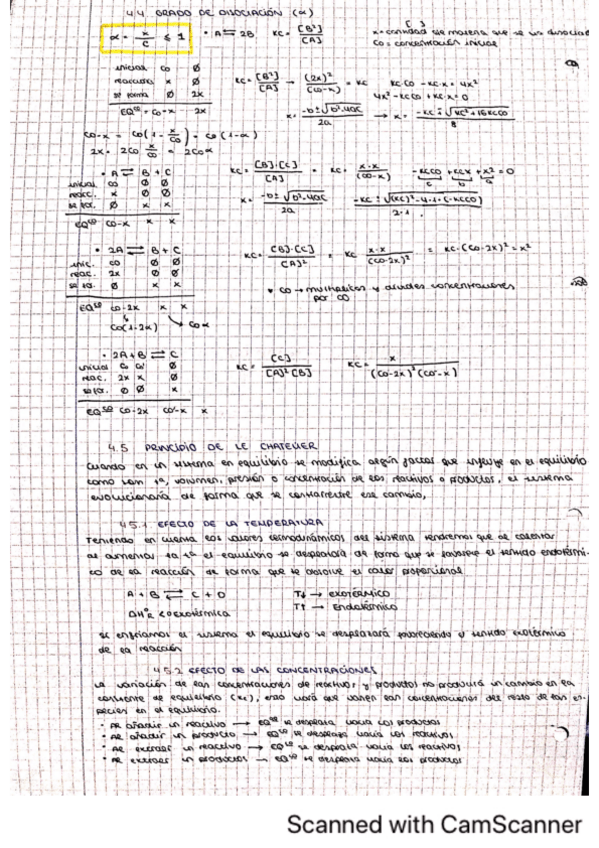 4.4 GRADO DE DISOCIACIÓN (α)
α = x/C ≤ 1 • A ⇌ 2B KC = [B²]/[A] x = cantidad de materia que se ha disociad
Co = concentración inicial
inicial co Ø
reacciona x Ø
se forma Ø 2x
EQᵉᵒ = Co-x 2x
KC = [B²]/[A] → (2x)²/(co-x) = KC KC·CO - KC·x = 4x²
4x² - KCCO + KC·x = 0
x = -b ± √b²-4ac / 2a → x = -KC ± √KC² + 16KCCO / 8
CO-x = CO(1 - x/CO) = CO(1-α)
2x = 2CO x/CO = 2COα
• A ⇌ B + C
inicial co Ø Ø
reacc. x Ø Ø
se for. Ø x x
EQᵉᵒ CO-x x x
KC = [B]·[C]/[A] = KC = x·x/(CO-x) -KCCO + KCX + x² = 0
c b a
x = -b ± √b²-4ac / 2a -KC ± √(KC)²-4·1·(-KCCO) / 2·1
• 2A ⇌ B + C
inic. co Ø Ø
reac. 2x Ø Ø
se fo. Ø x x
EQᵉᵒ co-2x x x
Co(1-2α) Coα
KC = [B]·[C]/[A]² = KC x·x/(CO-2x)² = KC·(CO-2x)² = x²
• CO → multiplicas y divides concentraciones
por CO
• 2A + B ⇌ C
inicial Co Co' Ø
reac. 2x x Ø
se for. Ø Ø x
EQᵉᵒ CO-2x CO'-x x
KC = [C]/[A]²[B] KC = x/(CO-2x)²(CO'-x)
4.5 PRINCIPIO DE LE CHATELIER
Cuando en un sistema en equilibrio se modifica algún factor que influye en el equilibrio
como son tª, volumen, presión o concentración de los reactivos o productos, el sistema
evolucionaría de forma que se contrarreste ese cambio,
4.5.1 EFECTO DE LA TEMPERATURA
Teniendo en cuenta los valores termodinámicos del sistema tendremos que al calentar
al aumentar la tª el equilibrio se desplazará de forma que se favorece el sentido endotérmi-
co de la reacción de forma que se absorbe el calor proporcional
A + B ⇌ C + D T↓ → exotérmico
ΔHºR < 0 exotérmica T↑ → Endotérmico
Si enfriamos el sistema el equilibrio se desplazará favoreciendo el sentido exotérmico
de la reacción
4.5.2 EFECTO DE LAS CONCENTRACIONES
La variación de las concentraciones de reactivos y productos no producirá un cambio en la
constante de equilibrio (KC), esto hará que varíen las concentraciones del resto de las es-
pecies en el equilibrio.
• Al añadir un reactivo → EQᵉᵒ se desplaza hacia los productos
• Al añadir un producto → EQᵉᵒ se desplaza hacia los reactivos
• Al extraer un reactivo → EQᵉᵒ se desplaza hacia los reactivos
• Al extraer un productos → EQᵉᵒ se desplaza hacia los productos
Scanned with CamScanner